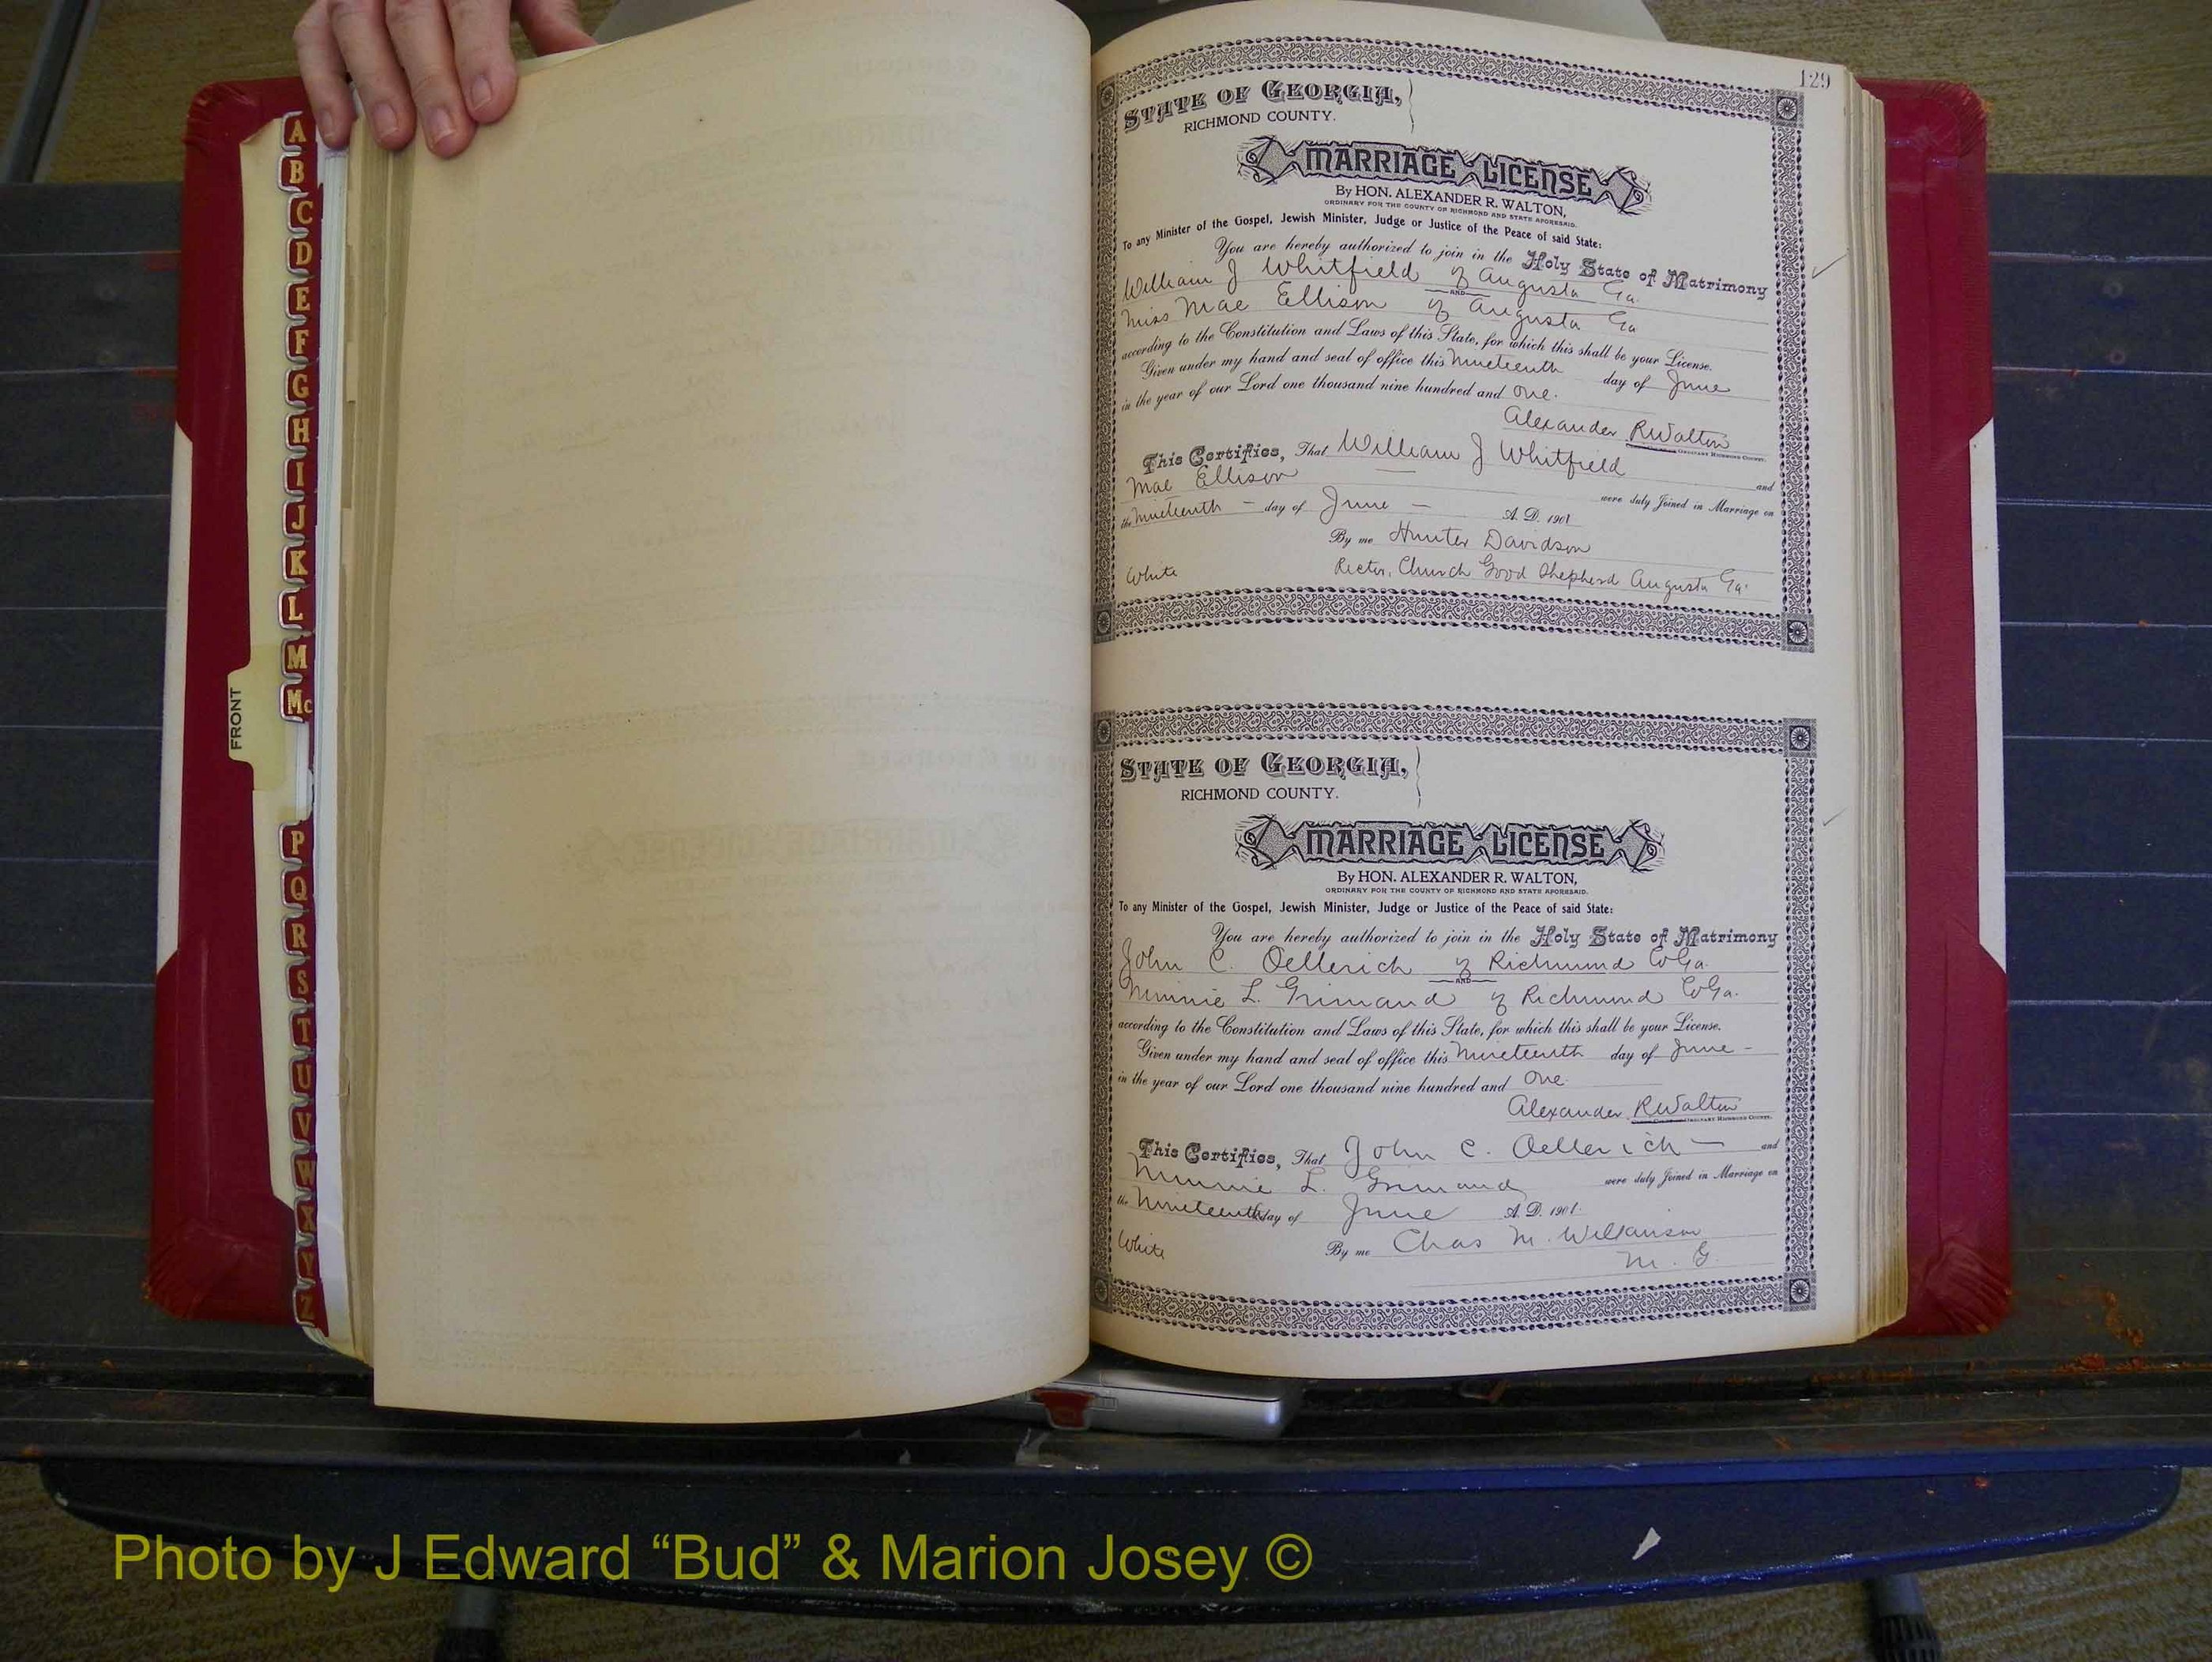 A
B
C
D
E
F
G
H
I
J
K
L
M
Mc
P
Q
R
S
T
U
V
W
X
Y
Z
FRONT
129
STATE OF GEORGIA,
RICHMOND COUNTY.
MARRIAGE LICENSE
By HON. ALEXANDER R. WALTON,
ORDINARY FOR THE COUNTY OF RICHMOND AND STATE AFORESAID.
To any Minister of the Gospel, Jewish Minister, Judge or Justice of the Peace of said State:
You are hereby authorized to join in the Holy State of Matrimony
William J Whitfield of Augusta Ga.
AND
Miss Mae Ellison of Augusta Ga
according to the Constitution and Laws of this State, for which this shall be your License.
Given under my hand and seal of office this Nineteenth day of June
in the year of our Lord one thousand nine hundred and One.
Alexander R Walton
ORDINARY RICHMOND COUNTY.
This Certifies, That William J Whitfield and
Mae Ellison were duly Joined in Marriage on
the Nineteenth - day of June - A. D. 1901
By me Hunter Davidson
White Rector, Church Good Shepherd Augusta Ga.
STATE OF GEORGIA,
RICHMOND COUNTY.
MARRIAGE LICENSE
By HON. ALEXANDER R. WALTON,
ORDINARY FOR THE COUNTY OF RICHMOND AND STATE AFORESAID.
To any Minister of the Gospel, Jewish Minister, Judge or Justice of the Peace of said State:
You are hereby authorized to join in the Holy State of Matrimony
John C. Oellerich of Richmond Co Ga.
AND
Minnie L. Grimaud of Richmond Co Ga.
according to the Constitution and Laws of this State, for which this shall be your License.
Given under my hand and seal of office this Nineteenth day of June -
in the year of our Lord one thousand nine hundred and One.
Alexander R Walton
ORDINARY RICHMOND COUNTY.
This Certifies, That John C. Oellerich - and
Minnie L. Grimaud were duly Joined in Marriage on
the Nineteenth day of June A. D. 1901.
White By me Chas M. Wilkinson
M. G.
Photo by J Edward “Bud” & Marion Josey ©